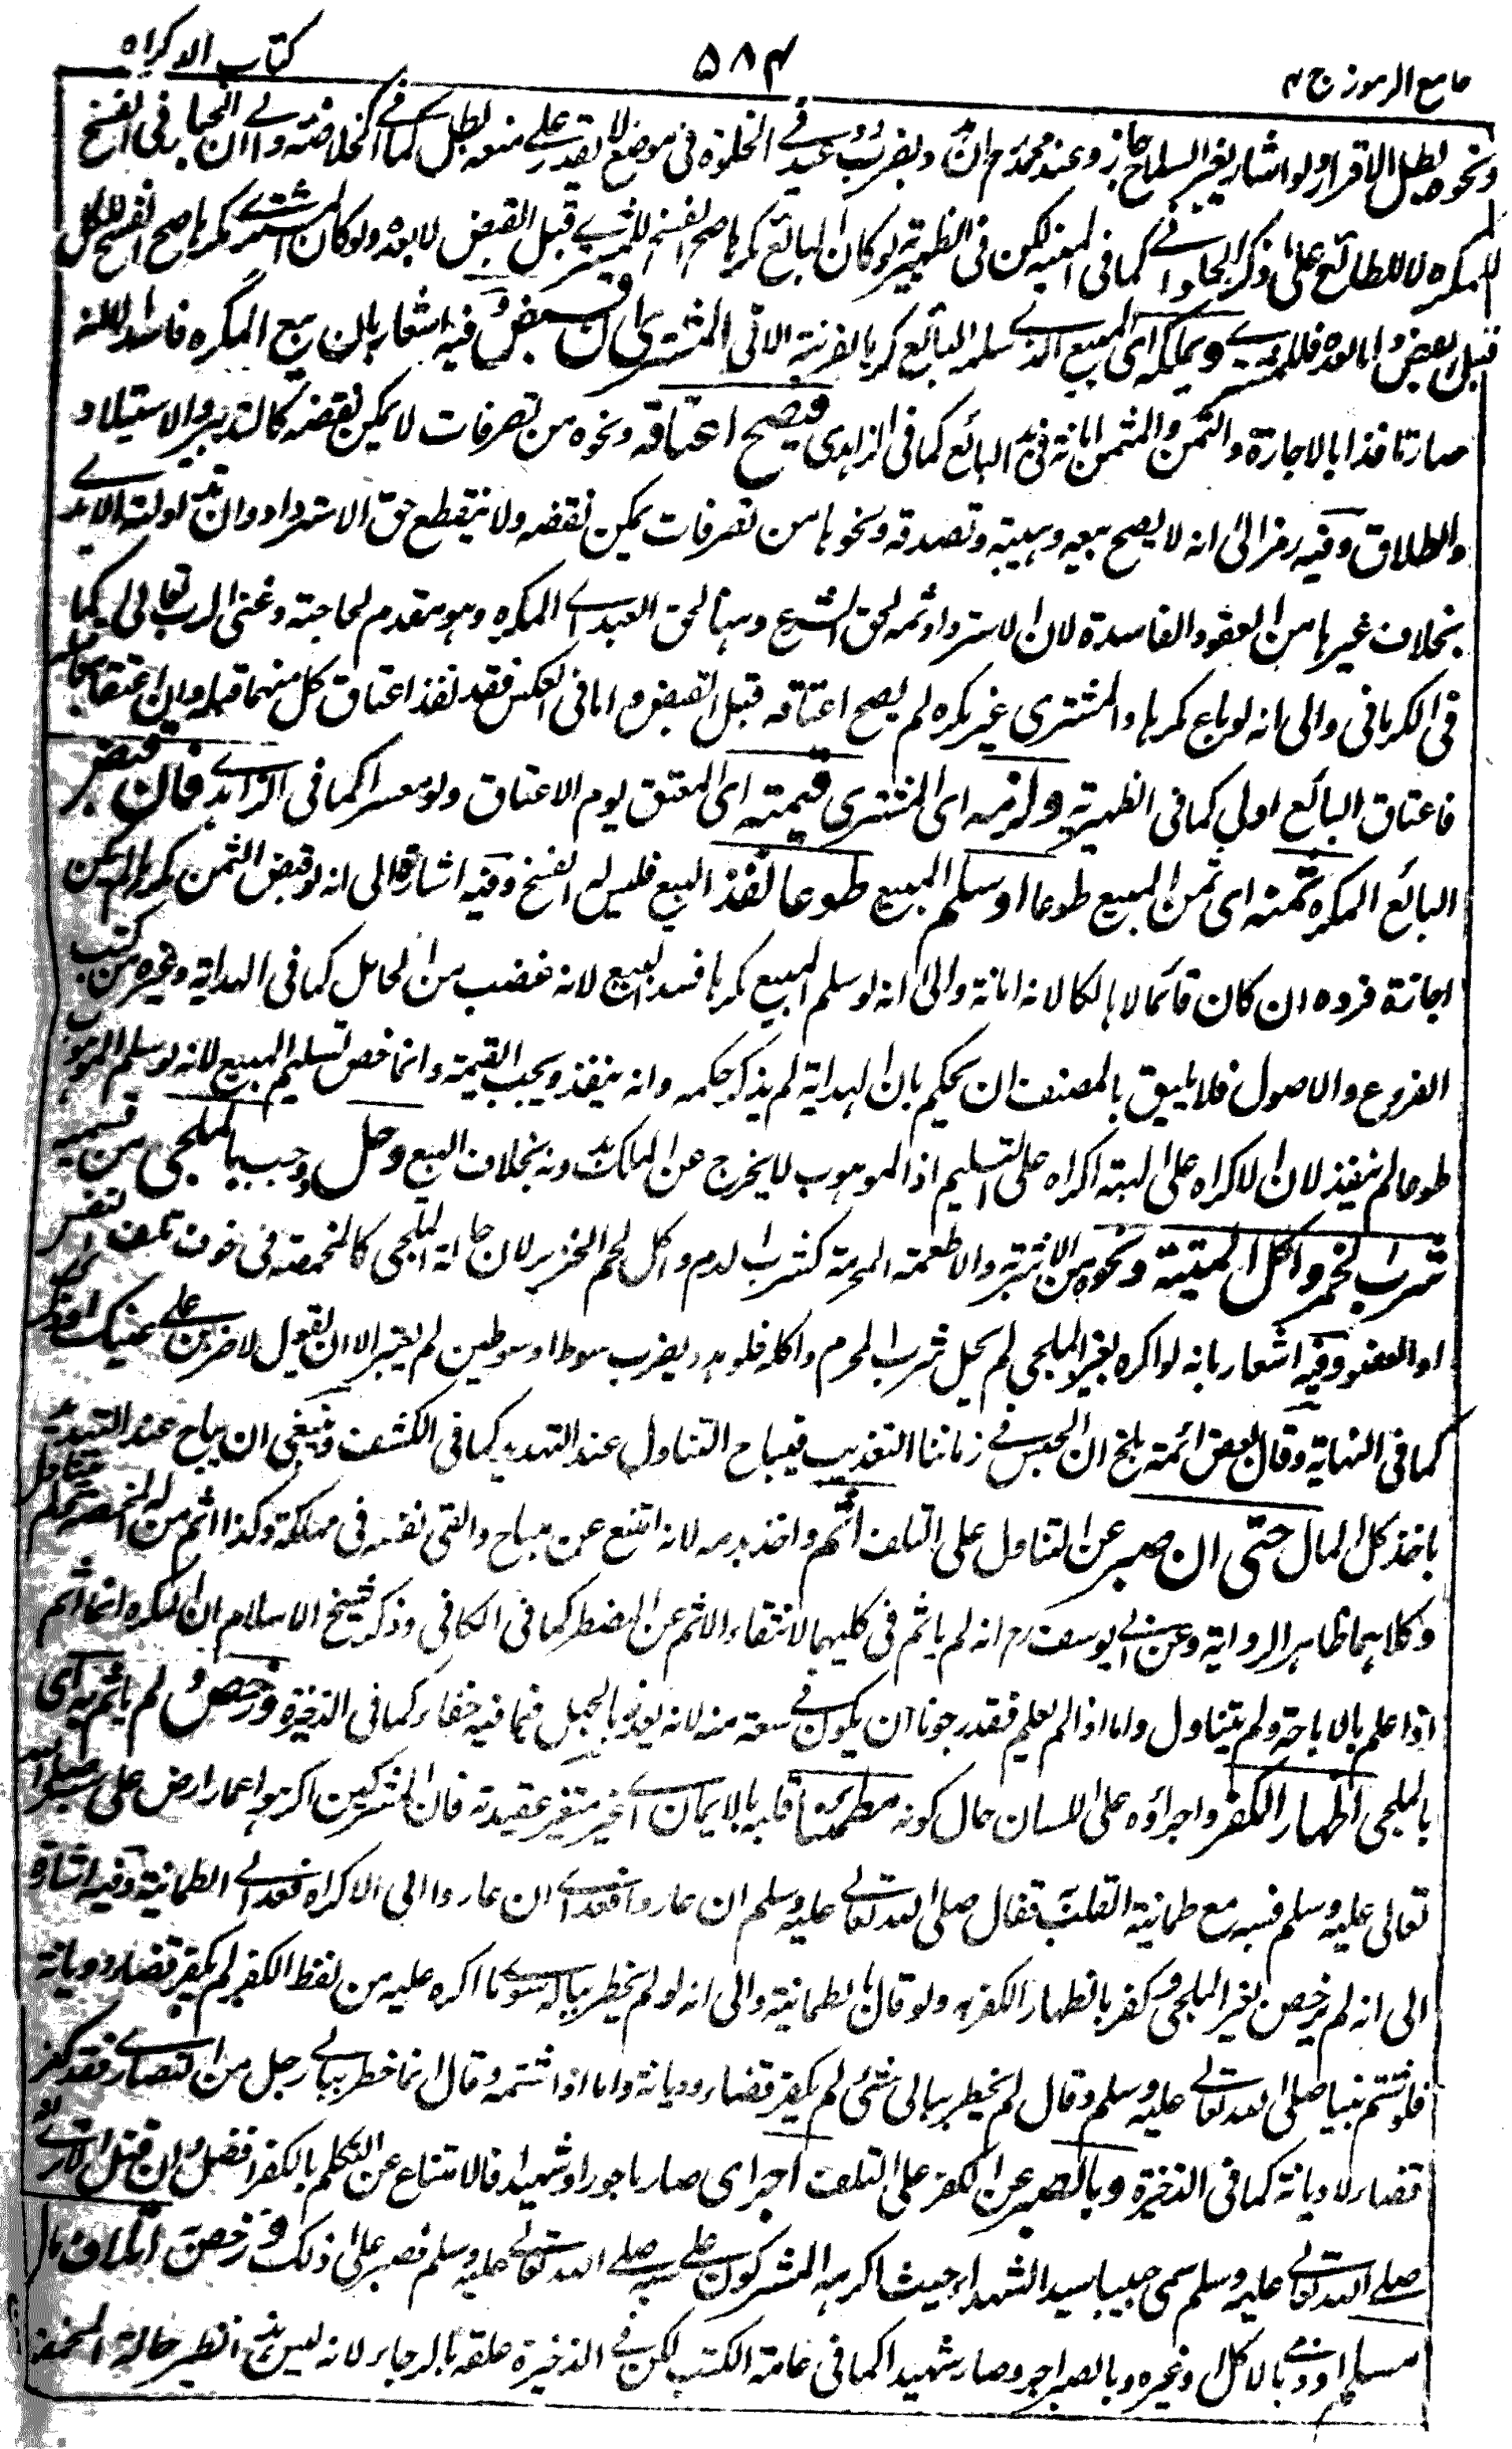 جامع الرموز ج ۴
۵۸۴
كتاب الاكراه
ونحوه بطل الاقرار ولو اشار بغير السلاح جاز وعند محمد رح ان بضرب في الخلوة في موضع لا يقدر على منعه بطل كما في الخلاصة والخيار في الفسخ
للمكره لا للطائع على ذكر كما في المنية لكن في الظهيرية لو كان البائع مكرها صح الفسخ للمشتري قبل القبض لا بعده ولو كان المشتري مكرها صح الفسخ
قبل القبض واما بعده فللمشتري ويملكه اى المبيع الذي سلمه البائع كرها بالقرينة الاتى المشترى ان قبض وفيه اشعار بان بيع المكره فاسد لانه
صار نافذا بالاجازة والثمن والمثمن امانة في يد البائع كما في الزاهدى فيصح اعتاقه ونحوه من تصرفات لا يمكن نقضه كالتدبير والاستيلاد
والطلاق وفيه رمز الى انه لا يصح بيعه وهبته وتصدقه ونحوها من تصرفات يمكن نقضه ولا ينقطع حق الاسترداد وان تداولته الايدي
بخلاف غيرها من العقود الفاسدة لان الاسترداد ثمه لحق الشرع وهنا لحق العبد اى المكره وهو مقدم لحاجته وغنى الرب تعالى كما
في الكرمانى والى انه لو باع مكرها والمشترى غير مكره لم يصح اعتاقه قبل القبض واما في العكس فقد نفذ اعتاق كل منهما قبله وان اعتقا معا
فاعتاق البائع اولى كما في الظهيرية ولزمه اى المشترى قيمته اى المعتق يوم الاعتاق ولو معسرا كما في الزاهدي فان قبض
البائع المكره ثمنه اى ثمن المبيع طوعا او سلم المبيع طوعا نفذ البيع فليس له الفسخ وفيه اشارة الى انه لو قبض الثمن مكرها لم يكن
اجازة فرده ان كان قائما لا هالكا لانه امانة والى انه لو سلم المبيع كرها فسد البيع لانه غصب من الحامل كما في الهداية وغيره من كتب
الفروع والاصول فلا يليق بالمصنف ان يحكم بان الهداية لم يذكر حكمه وانه ينفذ ويجب القيمة وانما خص تسليم المبيع لانه لو سلم الموهوب
طوعا لم ينفذ لان الاكراه على الهبة اكراه على التسليم اذ الموهوب لا يخرج عن الملك بدونه بخلاف البيع وحل ووجب بالملجى من قسميه
شرب الخمر واكل الميتة ونحوه من الاشربة والاطعمة المحرمة كشرب الدم واكل لحم الخنزير لان حالة الملجى كالمخمصة في خوف تلف النفس
او العضو وفيه اشعار بانه لو اكره بغير الملجى لم يحل شرب المحرم واكله فلو هدد بضرب سوط او سوطين لم يعتبر الا ان يقول لاضربن على عينيك او ذكرك
كما في النهاية وقال بعض ائمة بلخ ان الحبس في زماننا التعذيب فيباح التناول عند التهديد كما في الكشف وينبغى ان يباح عند التهديد
باخذ كل المال حتى ان صبر عن التناول على التلف اثم واخذ بدمه لانه امتنع عن مباح والقى نفسه في مهلكة وكذا اثم من اصابته مخمصة فلم يتناول
وكلاهما ظاهر الرواية وعن ابي يوسف رح انه لم ياثم في كليهما لانتفاء الاثم عن المضطر كما في الكافى وذكر شيخ الاسلام ان المكره انما اثم
اذا علم بالاباحة ولم يتناول واما اذا لم يعلم فقد رجونا ان يكون في سعة منه لانه يعذر بالجهل فيما فيه خفاء كما في الذخيرة ورخص ولم ياثم به اى
بالملجى اظهار الكفر واجراؤه على اللسان حال كونه مطمئنا قلبه بالايمان اى غير متغير عقيدته فان المشركين اكرهوا عمارا رض على سب صلى الله
تعالى عليه وسلم فسبه مع طمانية القلب فقال صلى الله تعالى عليه وسلم ان عادوا فعد اى ان عادوا الى الاكراه فعد الى الطمانية وفيه اشارة
الى انه لم يرخص بغير الملجى وكفر باظهار الكفر به ولو قال بالطمانية والى انه لو لم يخطر بباله سوى ما اكره عليه من لفظ الكفر لم يكفر قضاء وديانة
فلو شتم نبيا صلى الله تعالى عليه وسلم وقال لم يخطر ببالى شئ لم يكفر قضاء وديانة واما اذا شتمه وقال انما خطر ببالي رجل من النصارى فقد كفر
قضاء لا ديانة كما في الذخيرة وبالصبر عن الكفر على التلف اجر اى صار ماجورا وشهيدا فالامتناع عن التكلم بالكفر افضل وان قتل الا ترى انه
صلى الله تعالى عليه وسلم سمى خبيبا سيد الشهداء حيث اكرهه المشركون على سبه صلى الله تعالى عليه وسلم فصبر على ذلك ورخص اتلاف مال
مسلم او ذمي بالاكل او غيره وبالصبر اجر وصار شهيدا كما في عامة الكتب لكن في الذخيرة علقه بالرجاء لانه ليس نظير حالة المخمصة